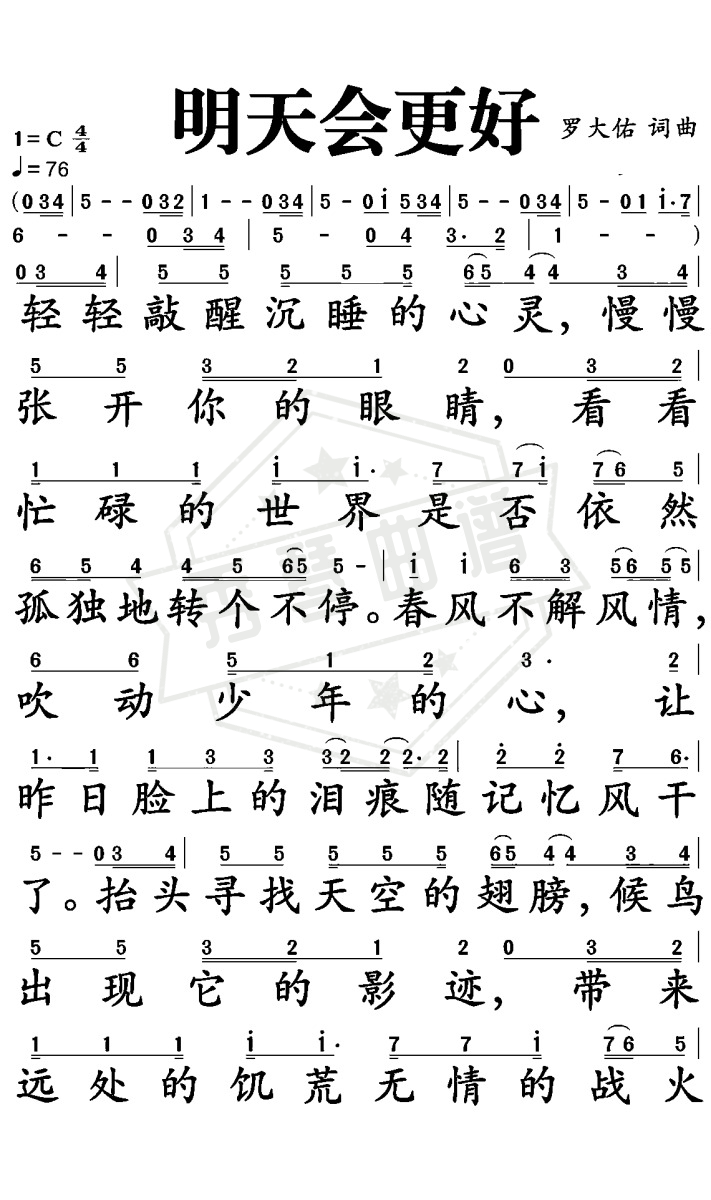 明天会更好
罗大佑 词曲
1=C 4/4
♩=76
(034|5--032|1--034|5-0i 534|5--034|5-01 i·7|
6--034|5-04 3·2|1--)
034|5 5 5 5 65 44 3 4|
轻轻敲醒沉睡的心灵，慢慢
5 5 3 2 1 2 0 3 2|
张开你的眼睛，看看
1 1 1 i i· 7 7i 76 5|
忙碌的世界是否依然
6 5 4 4 5 6 65 5-|i i 6 3 56 55|
孤独地转个不停。春风不解风情，
6 6 5 1 2 3· 2|
吹动少年的心，让
1· 1 1 3 3 32 2 2·2|2 2 7 6·
昨日脸上的泪痕随记忆风干
5--03 4|5 5 5 5 65 44 3 4|
了。抬头寻找天空的翅膀，候鸟
5 5 3 2 1 2 0 3 2|
出现它的影迹，带来
1 1 1 i i· 7 7 i 76 5|
远处的饥荒无情的战火
弹琴曲谱